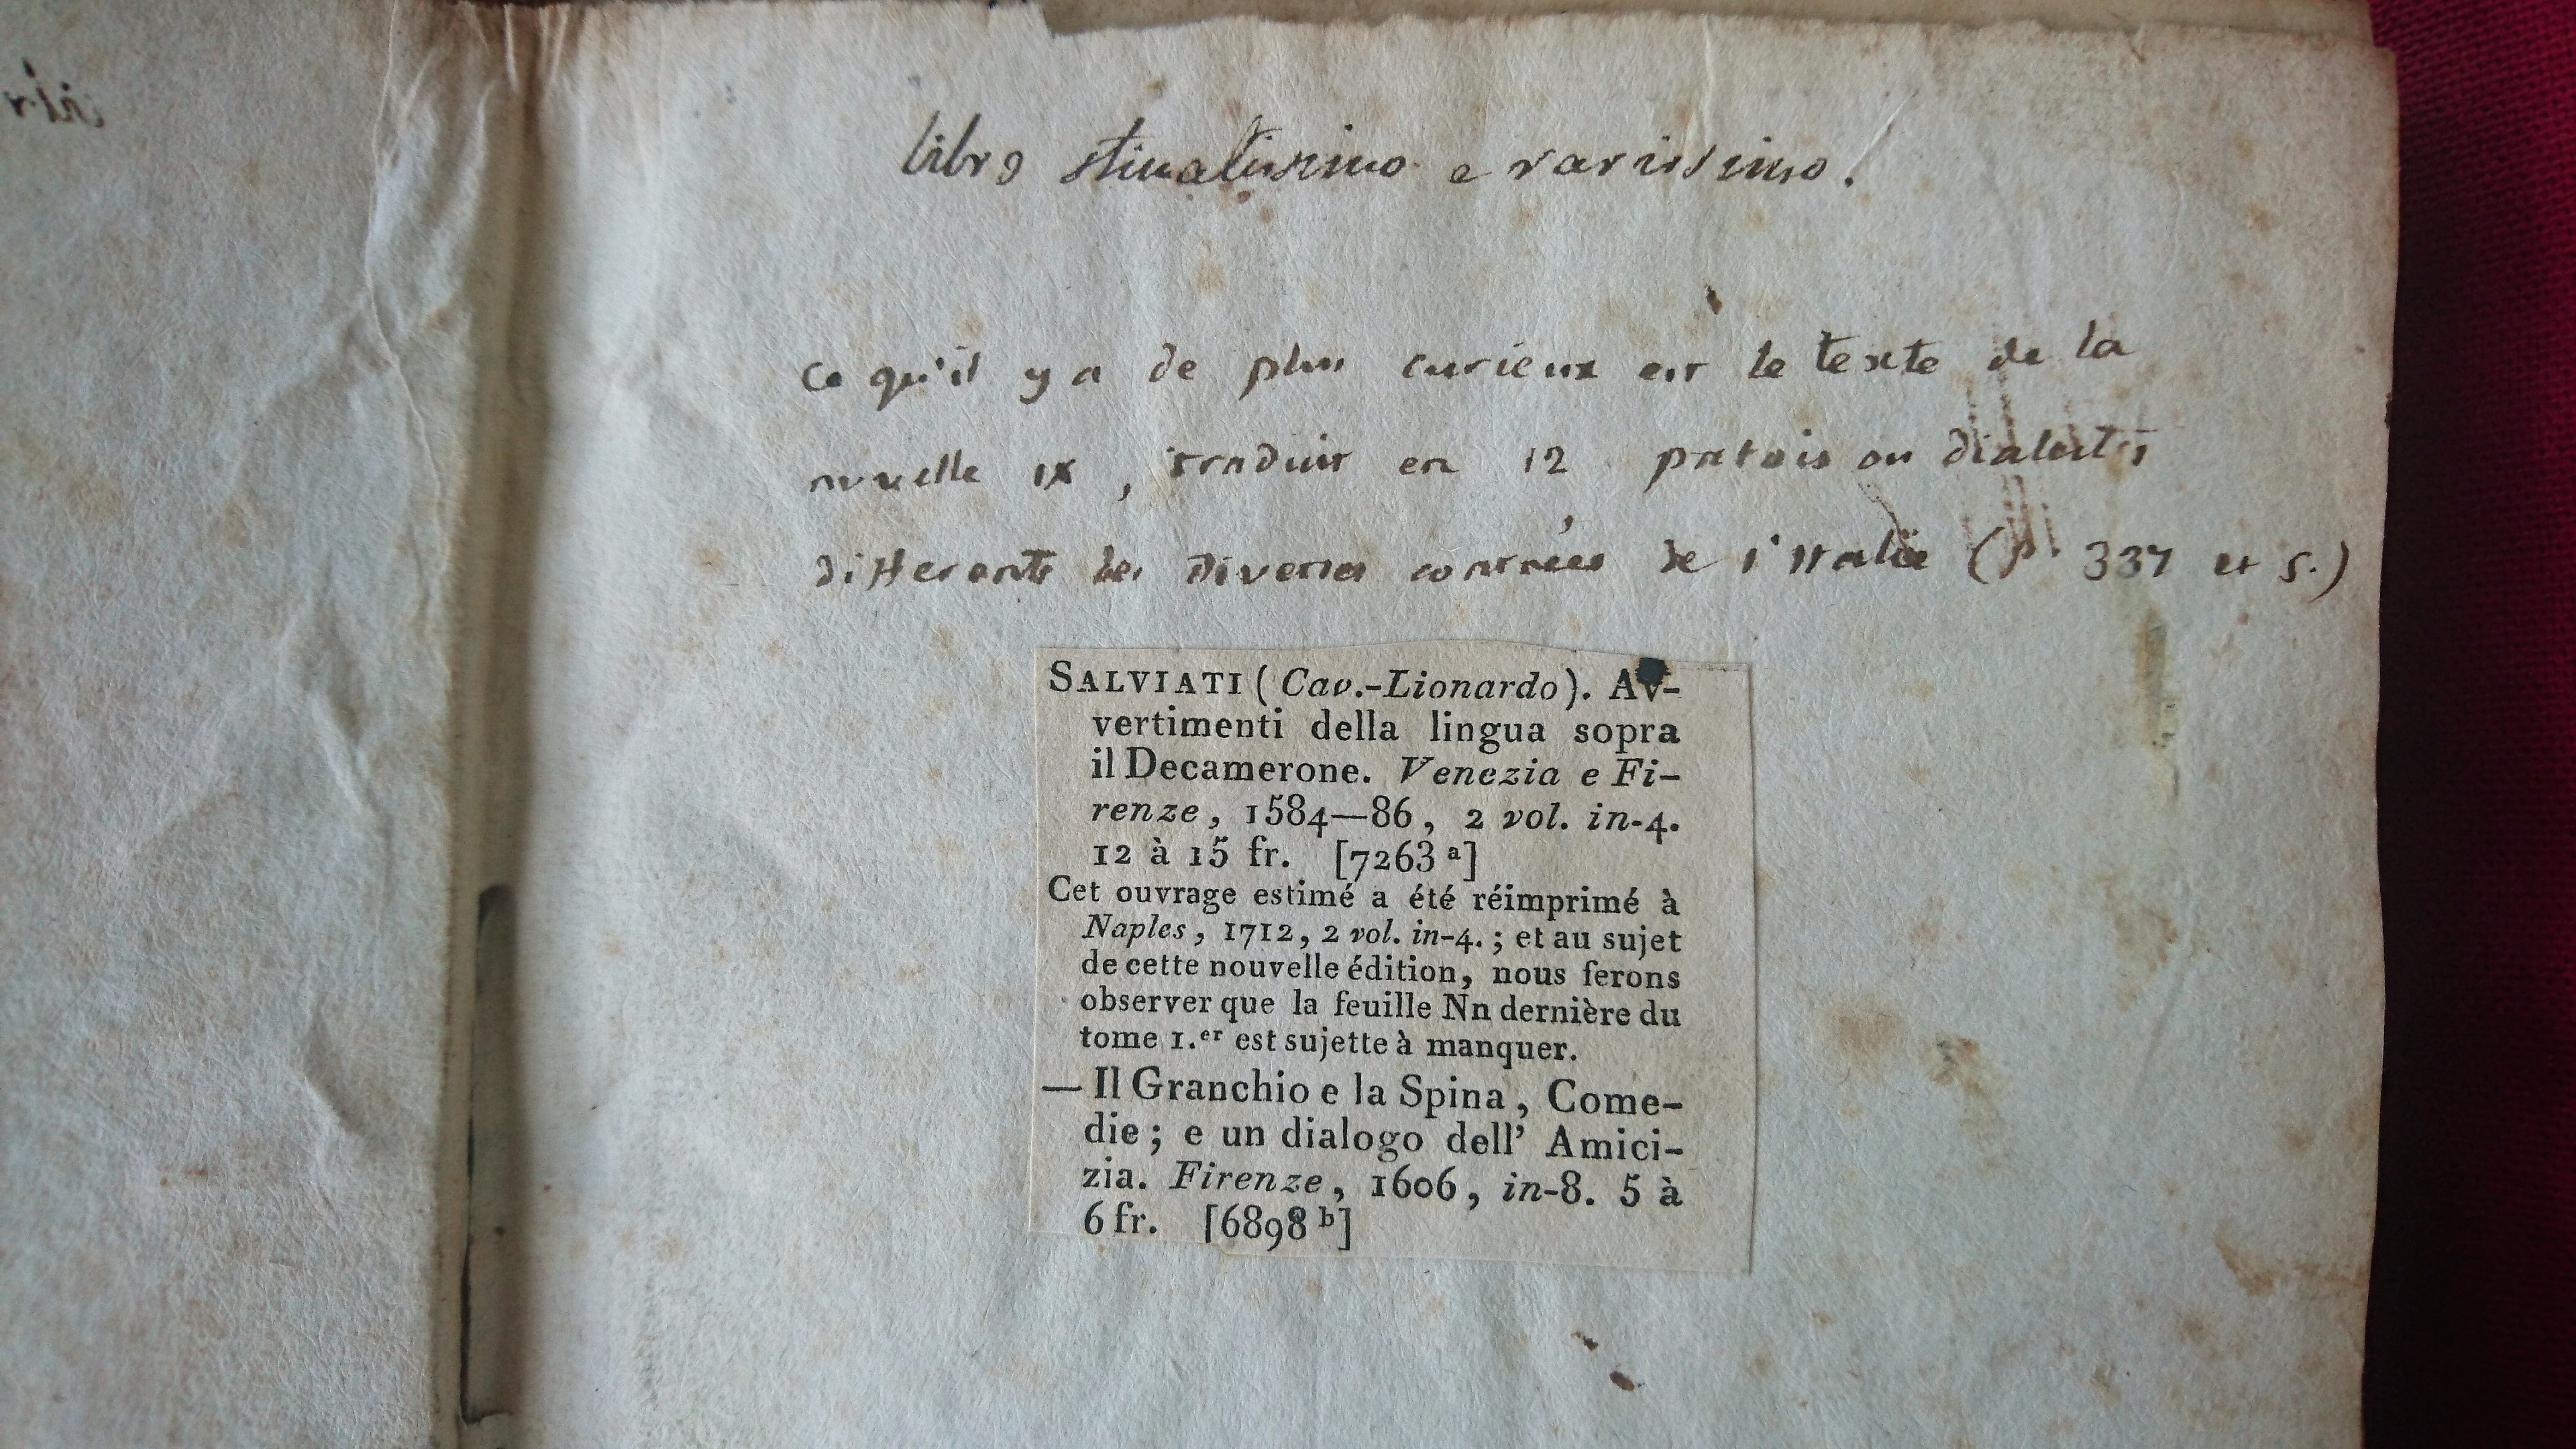 libro stimatissimo e rarissimo.
Ce qu'il y a de plus curieux est le texte de la
nouvelle IX, traduit en 12 patois ou dialectes
differents des diverses contrées de l'Italie (p. 337 et s.)
SALVIATI (Cav.-Lionardo). Av-
vertimenti della lingua sopra
il Decamerone. Venezia e Fi-
renze, 1584—86, 2 vol. in-4.
12 à 15 fr. [7263 a]
Cet ouvrage estimé a été réimprimé à
Naples, 1712, 2 vol. in-4. ; et au sujet
de cette nouvelle édition, nous ferons
observer que la feuille Nn dernière du
tome 1.er est sujette à manquer.
— Il Granchio e la Spina, Come-
die ; e un dialogo dell' Amici-
zia. Firenze, 1606, in-8. 5 à
6 fr. [6898 b]